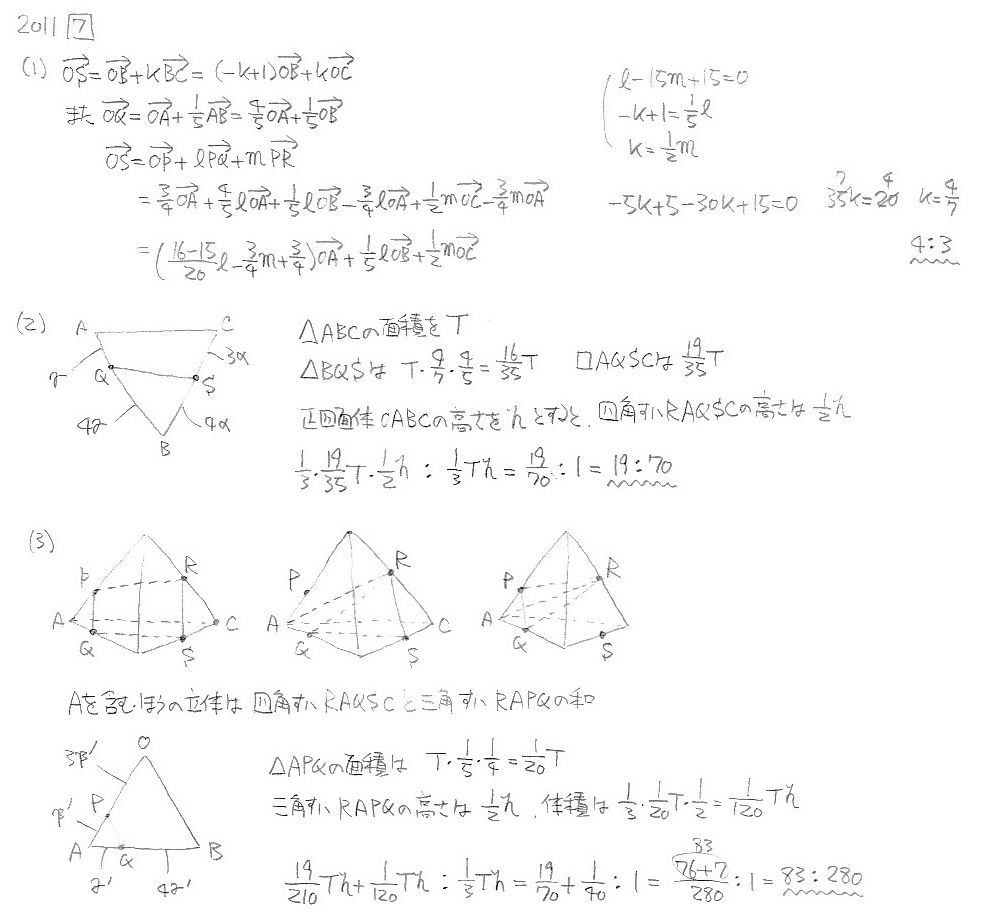 2011 7
(1) OS→=OB→+kBC→=(-k+1)OB→+kOC→
また OQ→=OA→+1/5AB→=4/5OA→+1/5OB→
OS→=OP→+lPQ→+mPR→
=3/4OA→+4/5lOA→+1/5lOB→-3/4lOA→+1/2mOC→-3/4mOA→
=(16-15/20 l-3/4m+3/4)OA→+1/5lOB→+1/2mOC→
l-15m+15=0
-k+1=1/5l
k=1/2m
-5k+5-30k+15=0 7 35k=4 20 k=4/7
4:3
(2)
A C
γ Q S 3α
4γ 4α
B
△ABCの面積をT
△BQSは T・4/7・4/5=16/35T □AQSCは19/35T
正四面体OABCの高さをhとすると、四角すいRAQSCの高さは1/2h
1/3・19/35T・1/2h : 1/3Th=19/70:1=19:70
(3)
P R A C Q S
P R A C Q S
P R A Q S
Aを含むほうの立体は四角すいRAQSCと三角すいRAPQの和
O
3β'
P
β'
A Q B
γ' 4γ'
△APQの面積は T・1/5・1/4=1/20T
三角すいRAPQの高さは1/2h、体積は1/3・1/20T・1/2=1/120Th
19/210Th+1/120Th : 1/3Th=19/70+1/40 : 1=83 76+7/280 : 1=83:280